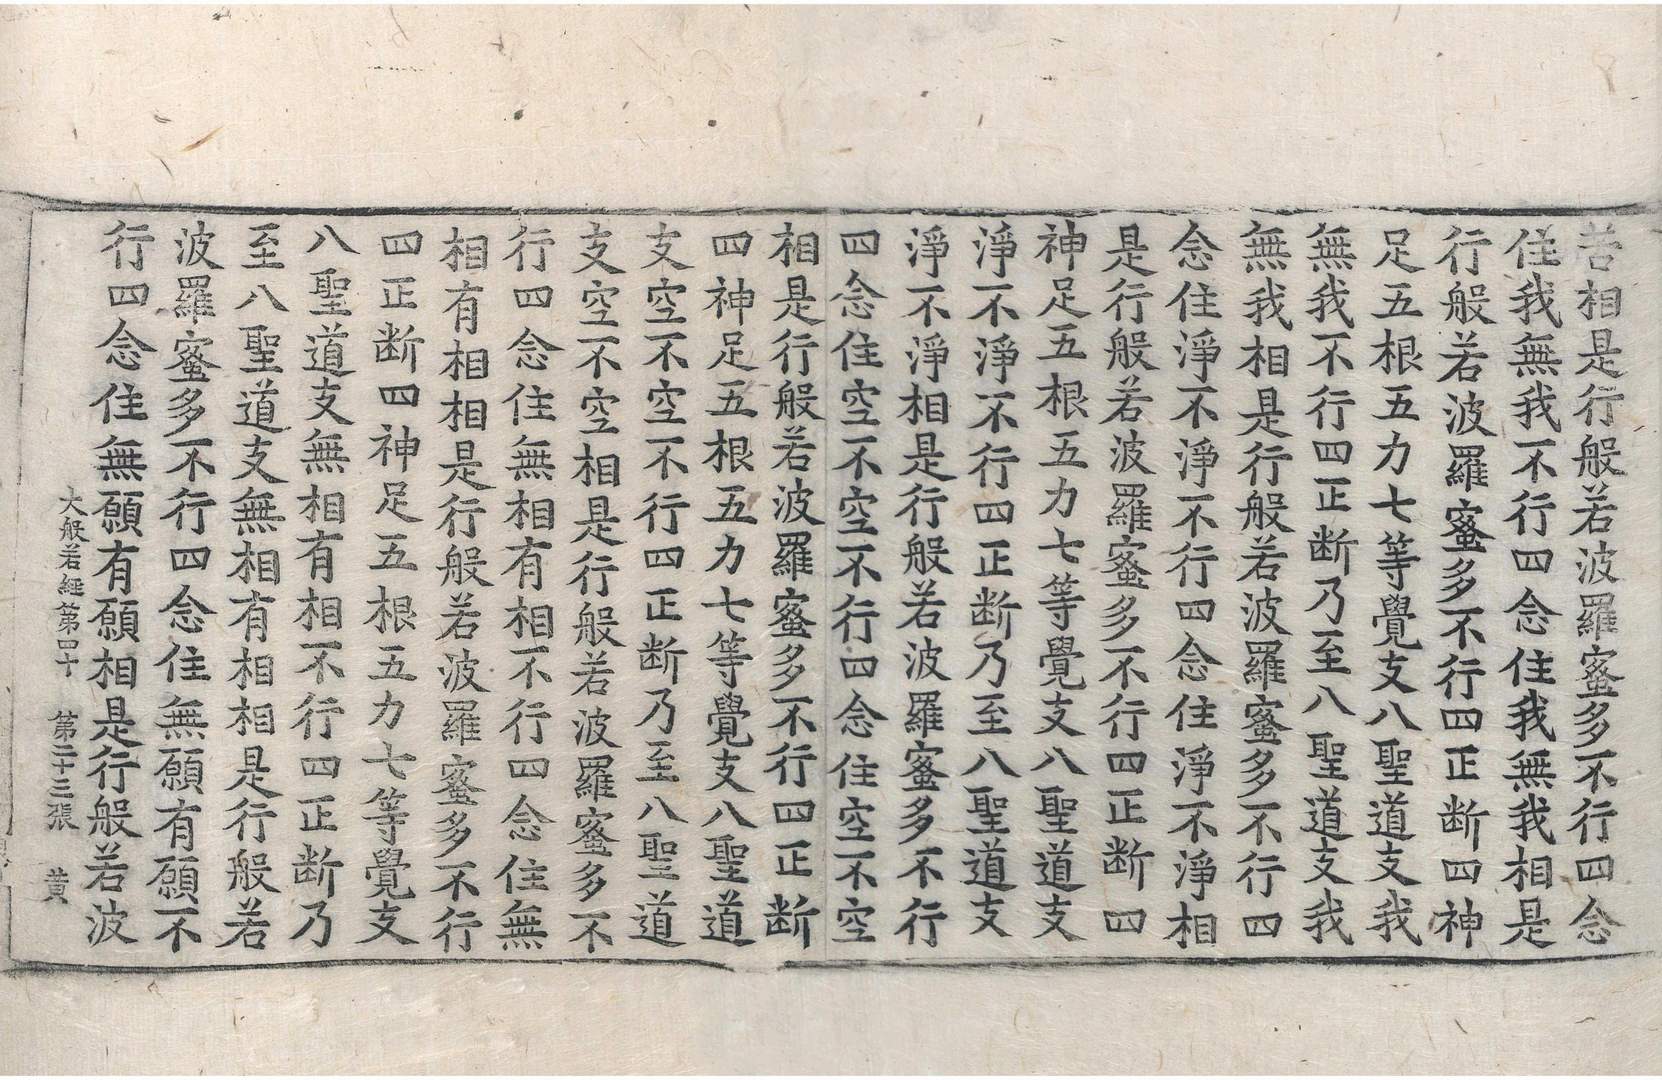 苦相是行般若波羅蜜多不行四念
住我無我不行四念住我無我相是
行般若波羅蜜多不行四正断四神
足五根五力七等覺支八聖道支我
無我不行四正断乃至八聖道支我
無我相是行般若波羅蜜多不行四
念住淨不淨不行四念住淨不淨相
是行般若波羅蜜多不行四正断四
神足五根五力七等覺支八聖道支
淨不淨不行四正断乃至八聖道支
淨不淨相是行般若波羅蜜多不行
四念住空不空不行四念住空不空
相是行般若波羅蜜多不行四正断
四神足五根五力七等覺支八聖道
支空不空不行四正断乃至八聖道
支空不空相是行般若波羅蜜多不
行四念住無相有相不行四念住無
相有相相是行般若波羅蜜多不行
四正断四神足五根五力七等覺支
八聖道支無相有相不行四正断乃
至八聖道支無相有相相是行般若
波羅蜜多不行四念住無願有願不
行四念住無願有願相是行般若波
大般若經第四十 第二十三張 黄